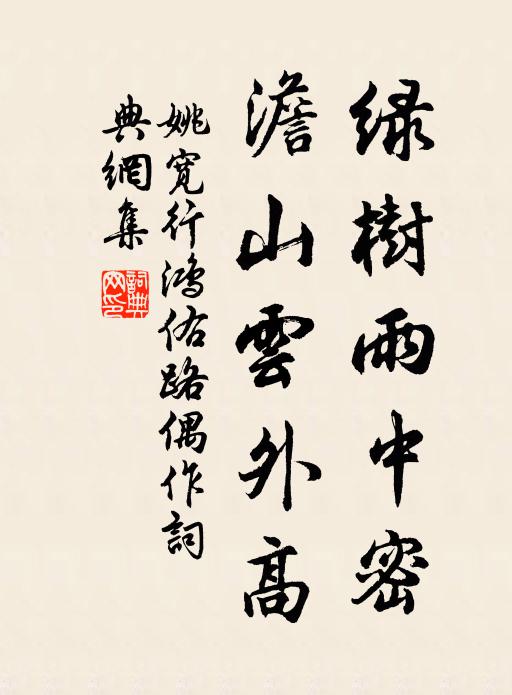 绿樹雨中密
澹山雲外高
姚寬行鴻佲路偶作詞
典網集
詞典网印